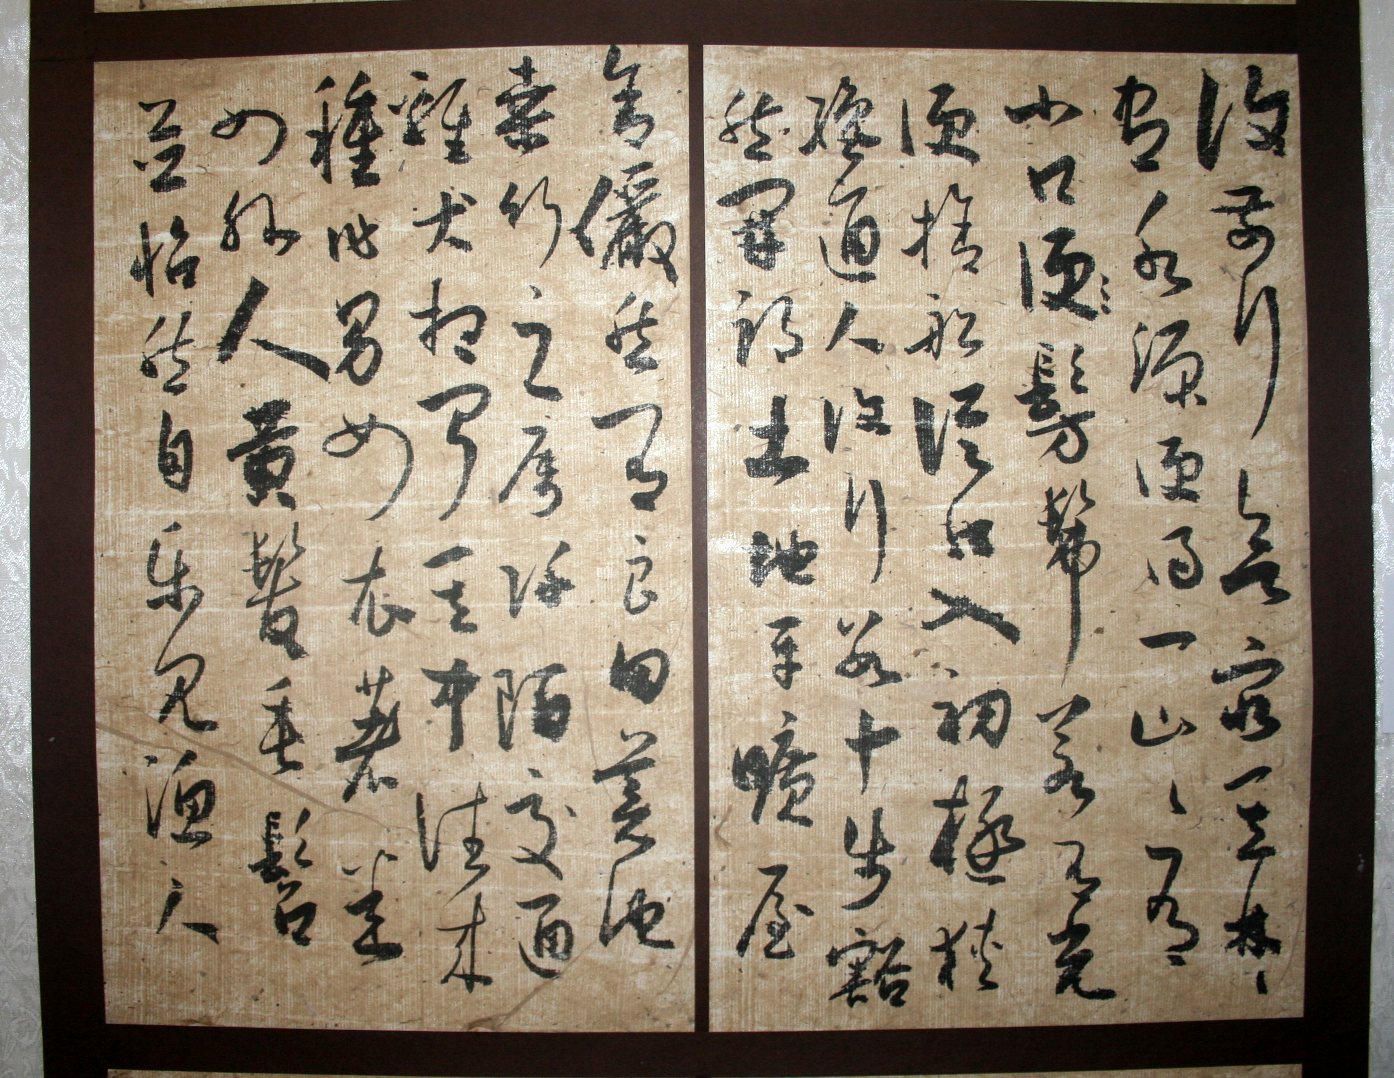 復前行欲窮其林〻
盡水源便得一山〻有
小口便髣髴若有光
便捨船從口入初極狹
纔通人復行數十步豁
然開朗土地平曠屋
舍儼然有良田美池
桑竹之屬阡陌交通
雞犬相聞其中往來
種作男女衣著悉
如外人黃髮垂髫
並怡然自樂見漁人